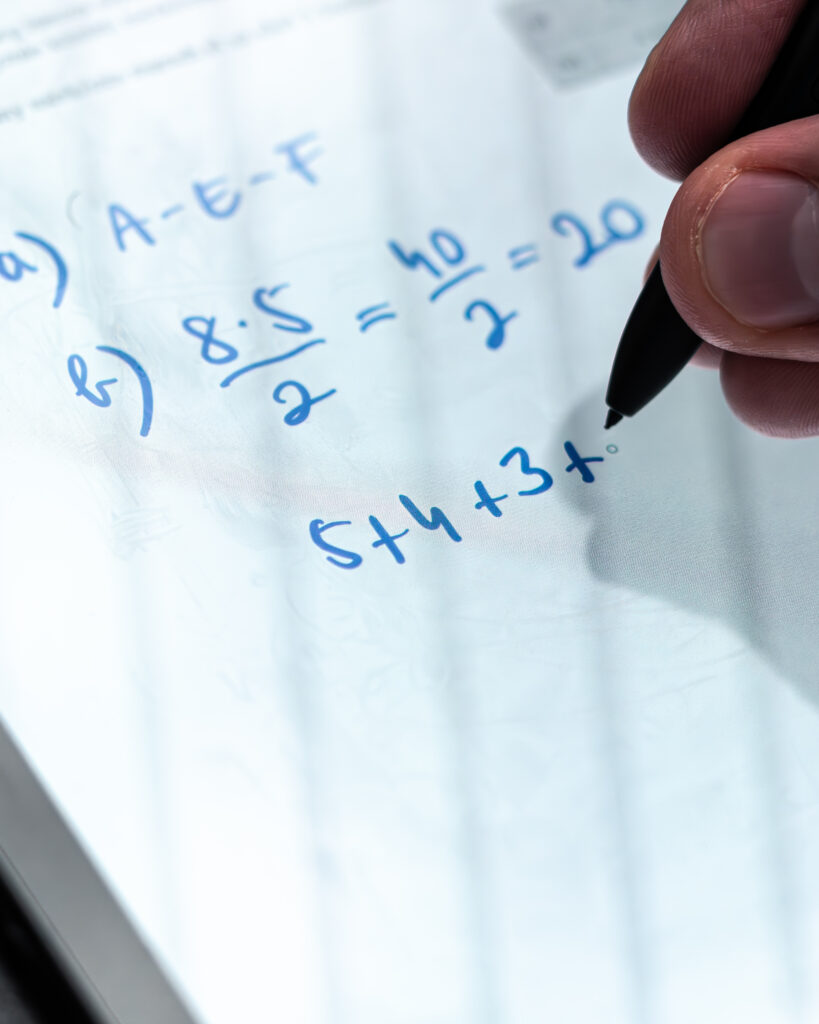 a) A-E-F
b) 8·5/2 = 40/2 = 20
5+4+3+